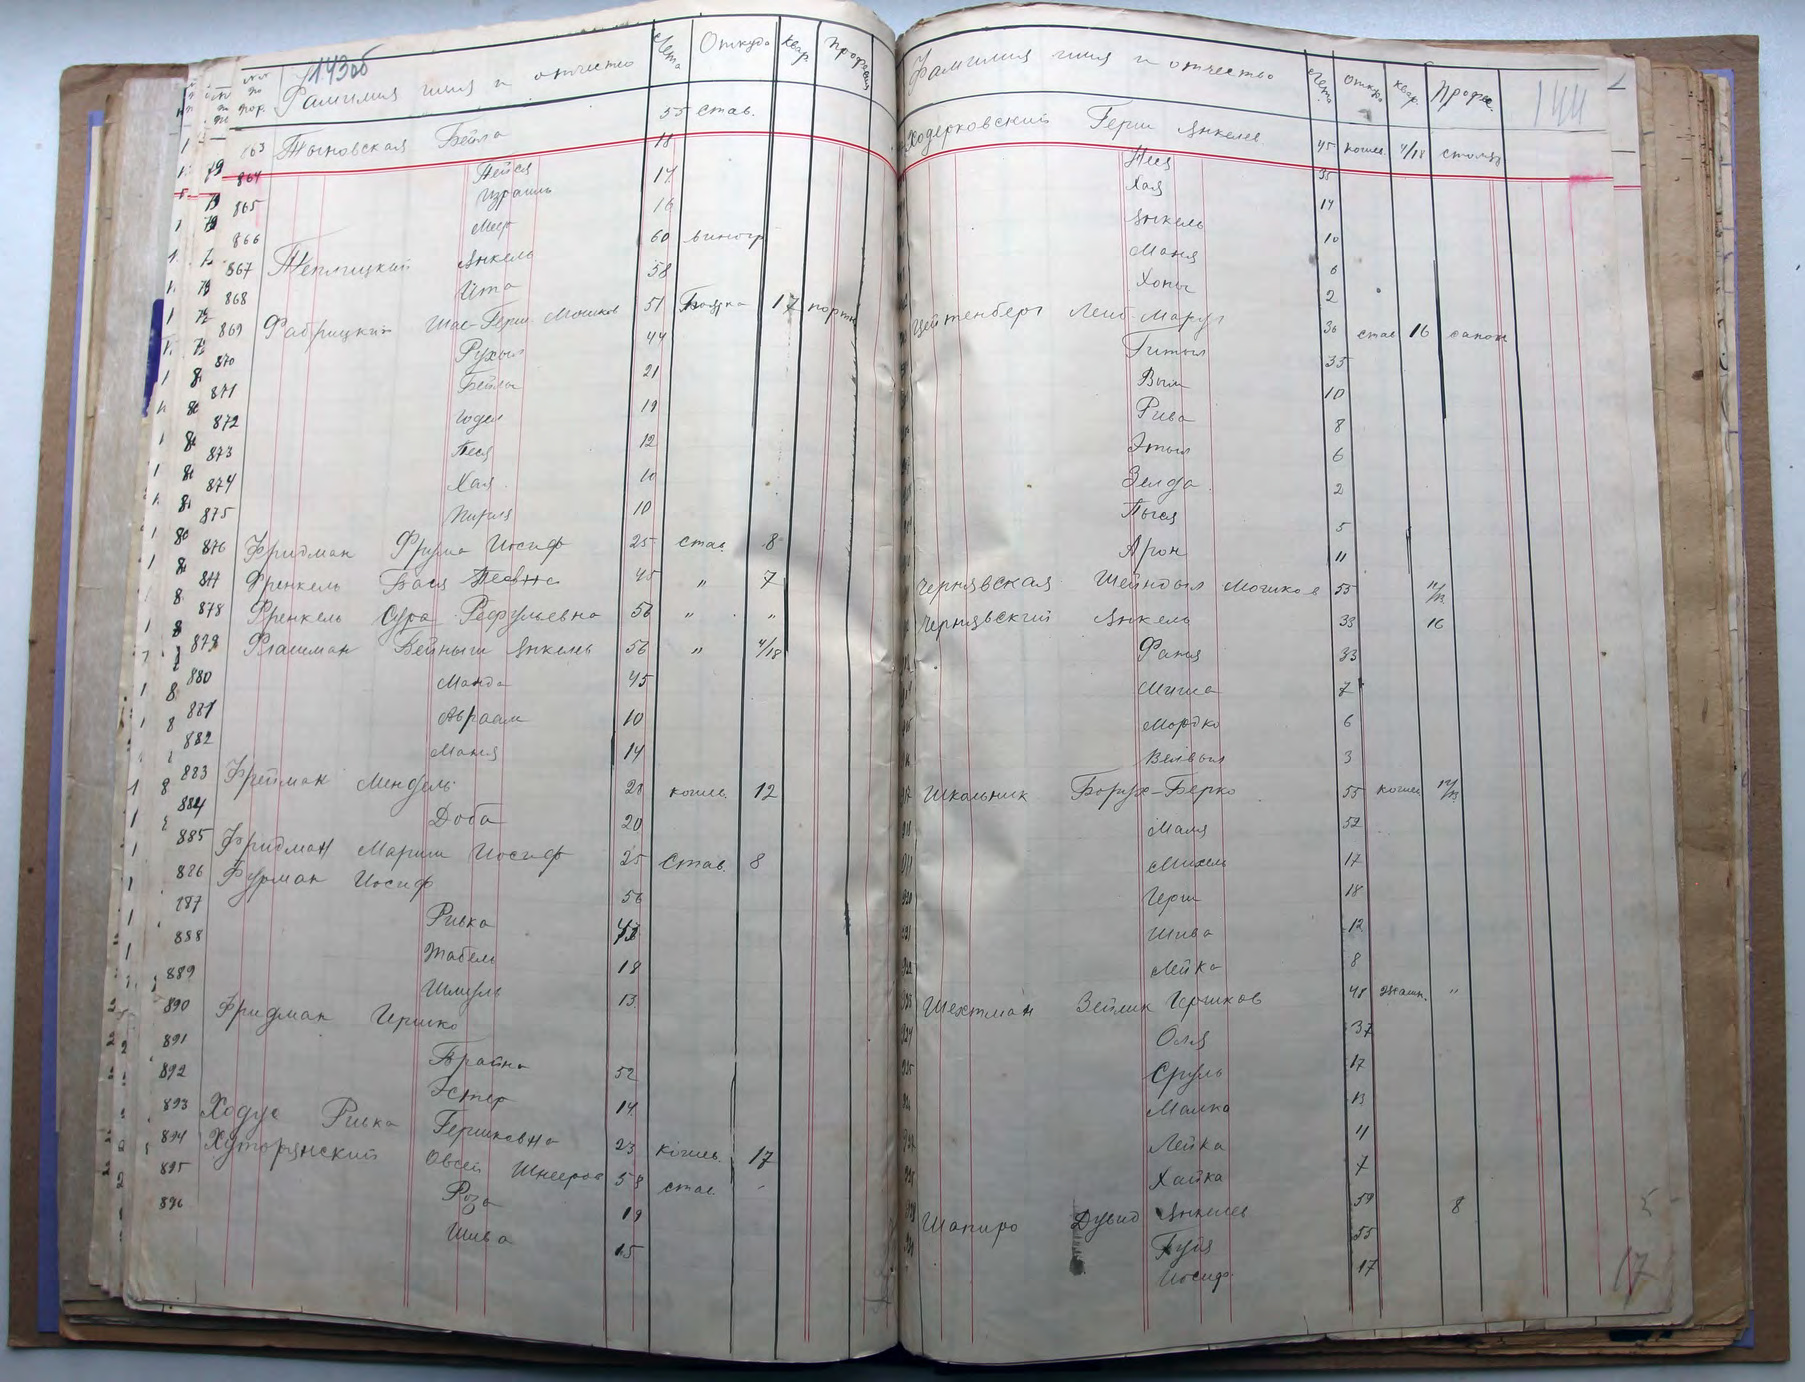 143об
№№ по пор. Фамилия имя и отчество Лета Откуда квар. професия
863 Тыновская Бейла 55 став.
864 Пейся 18
865 Израиль 17
866 Меер 16
867 Теплицкий Янкель 60 виногр
868 Ита 58
869 Фабрицкий Шае-Герш Мошков 51 17 портн
870 Рухыл 44
871 Бейла 21
872 Юдел 19
873 Песя 12
874 Хая 10
875 Пирля 10
876 Фридман Фрума Иосиф 25 став. 8
877 Френкель Бася 45 " 7
878 Френкель Сура Рефульевна 56 " "
879 Флашман Вейныш Янкель 56 " 4/18
880 Манда 45
881 Авраам 10
882 Маня 14
883 Фрейман Мендель 21 кошев. 12
884 Доба 20
885 Фридман Мариш Иосиф 25 став. 8
886 Фурман Иосиф 56
887 Ривка
888 Табель 18
889 Шмуль 13
890 Фридман Гершко
891 Брайна 52
892 Эстер 14
893 Ходус Ривка Гершковна 23 кошев. 17
894 Хуторянский Овсей Шнееров 58 став. "
895 Роза 19
896 Шива 15
Фамилия имя и отчество Лета Откуда квар. Профес. 144
Ходерковский Герш Янкелев 45 кошев 4/18 столяр
Неся 35
Хая 14
Янкель 10
Маня 6
Хопы 2
Цейтенберг Лейб-Мардк 36 став 16 сапож
Гитыл 35
Вым 10
Рива 8
Этыл 6
Зелда 2
Пыся 5
Арон 11
Чернявская Шейндыл Мошков 55 11/13
Чернявский Янкель 33 16
Фаня 33
Миша 7
Мордко 6
Велвыл 3
Школьник Борух-Берко 55 кошев 12/13
Маля 52
Михель 17
Герш 18
Шива 12
Лейка 8
Шехтман Зейлик Гершков 48 жашк. "
Оля 37
Сруль 17
Малка 13
Лейка 11
Хайка 7
Шапиро Дувид Янкелев 59 8
Гуля 55
Иосиф 17
17